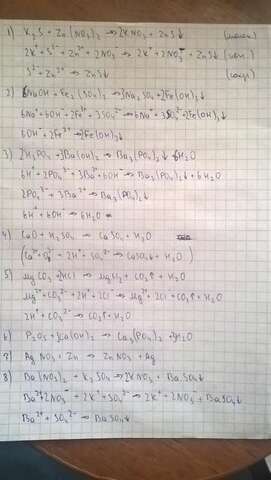 1) K₂S + Zn(NO₃)₂ → 2KNO₃ + ZnS↓ (молек.)
2K⁺ + S²⁻ + Zn²⁺ + 2NO₃⁻ → 2K⁺ + 2NO₃⁻ + ZnS↓ (ион.)
S²⁻ + Zn²⁺ → ZnS↓ (сокр)
2) 6NaOH + Fe₂(SO₄)₃ → 3Na₂SO₄ + 2Fe(OH)₃↓
6Na⁺ + 6OH + 2Fe³⁺ + 3SO₄²⁻ → 6Na⁺ + 3SO₄²⁻ + 2Fe(OH)₃↓
6OH + 2Fe³⁺ → 2Fe(OH)₃↓
3) 2H₃PO₄ + 3Ba(OH)₂ → Ba₃(PO₄)₂↓ + 6H₂O
6H⁺ + 2PO₄³⁻ + 3Ba²⁺ + 6OH⁻ → Ba₃(PO₄)₂↓ + 6H₂O
2PO₄³⁻ + 3Ba²⁺ → Ba₃(PO₄)₂↓
6H + 6OH → 6H₂O
4) CaO + H₂SO₄ → CaSO₄ + H₂O
(Ca²⁺ + O²⁻ + 2H⁺ + SO₄²⁻ → CaSO₄↓ + H₂O)
5) MgCO₃ + 2HCl → MgCl₂ + CO₂↑ + H₂O
Mg²⁺ + CO₃²⁻ + 2H⁺ + 2Cl⁻ → Mg²⁺ + 2Cl + CO₂↑ + H₂O
2H⁺ + CO₃²⁻ → CO₂↑ + H₂O
6) P₂O₅ + 3Ca(OH)₂ → Ca₃(PO₄)₂ + 3H₂O
7) AgNO₃ + Zn → ZnNO₃ + Ag
8) Ba(NO₃)₂ + K₂SO₄ → 2KNO₃ + BaSO₄↓
Ba²⁺ + 2NO₃⁻ + 2K⁺ + SO₄²⁻ → 2K⁺ + 2NO₃⁻ + BaSO₄↓
Ba²⁺ + SO₄²⁻ → BaSO₄↓